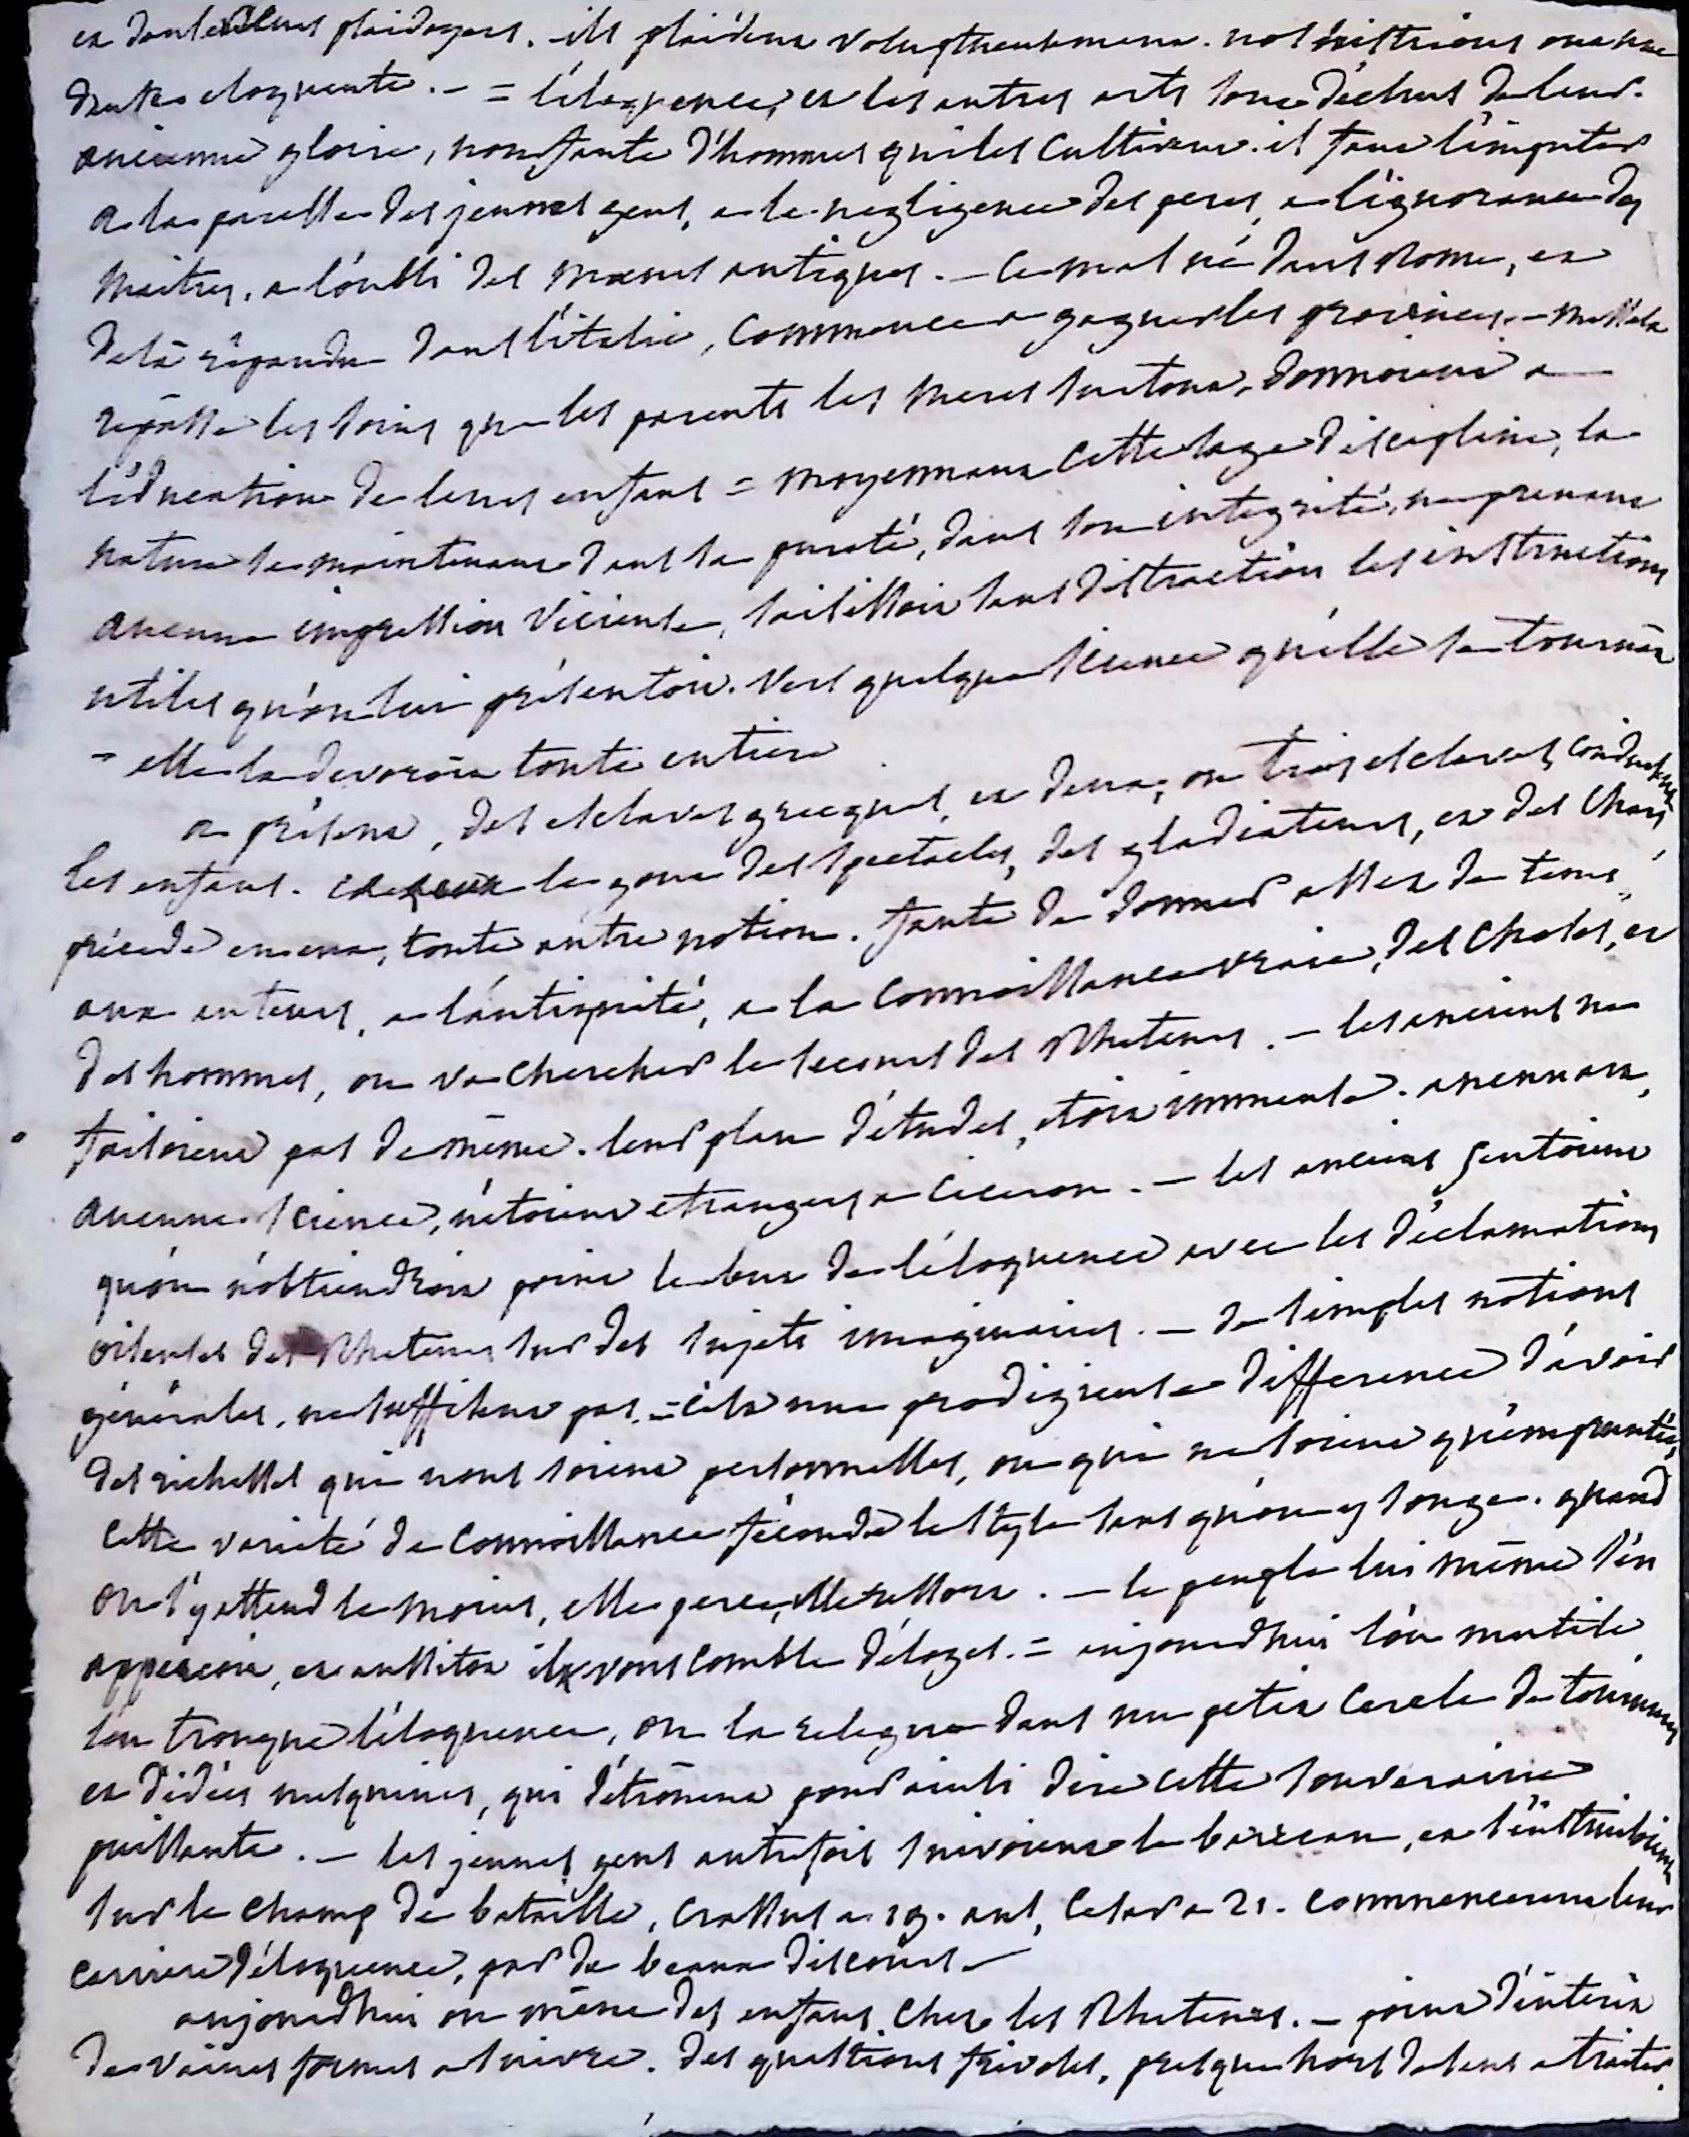 et dansent leurs plaidoyers. ils plaident voluptueusement. nos histrions ont une
danse eloquente. - = l'éloquence, et les autres arts sont déchus de leur
ancienne gloire, non faute d'hommes qui les cultivent. il faut l'imputer
a la paresse des jeunes gens, a la negligence des peres, a l'ignorance des
maitres, a l'oubli des mœurs antiques. - le mal né dans Rome, et
delà répandu dans l'italie, commence a gagner les provinces. - Messala
rapelle les soins que les parents les meres surtout, donnoient a
l'éducation de leurs enfans = moyennant cette sage discipline, la
nature se maintenant dans sa pureté, dans son integrité, ne prenant
aucune impression vicieuse, saisissoit sans distraction les instructions
utiles qu'on lui présentoit. vers quelque science qu'elle se tournât
- elle la devoroit toute entiere
a présent, des esclaves grecques, et deux, ou trois esclaves, conduisent
les enfans. le gout des spectacles, des gladiateurs, et des chars,
précede en eux, toute autre notion. faute de donner assez de tems,
aux auteurs, a l'antiquité, a la connoissance vraie, des choses, et
des hommes, on va chercher le secours des Rheteurs. - les anciens ne
faisoient pas de même. leur plan d'études, étoit immense. aucun art,
aucune science, n'étoient etrangers a Ciceron. - les anciens sentoient
qu'on n'obtiendroit point le but de l'éloquence avec les déclamations
oiseuses des Rheteurs sur des sujets imaginaires. - de simples notions
générales, ne suffisent pas. = c'est une prodigieuse difference d'avoir
des richesses qui nous soient personnelles, ou qui ne soient qu'empruntées,
cette varieté de connoissance féconde le style sans qu'on y songe. quand
on s'y attend le moins, elle perce, elle ressort. - le peuple lui même s'en
apperçoit, et aussitot il vous comble d'éloges. = aujourdhui l'on mutile
l'on tronque l'éloquence, on la relegue dans un petit cercle de tournures
et d'idées mesquines, qui détrônent pour ainsi dire cette souveraine
puissante. - les jeunes gens autrefois suivoient le barreau, et s'instruisoient
sur le champ de bataille, Crassus a 19. ans, Cesar a 21. commencerent leur
carriere d'éloquence, par de beaux discours -
aujourdhui on mêne des enfans chez les Rheteurs. - point d'intérêt
de vaines formes a suivre. des questions frivoles, presque hors de sens a traiter.